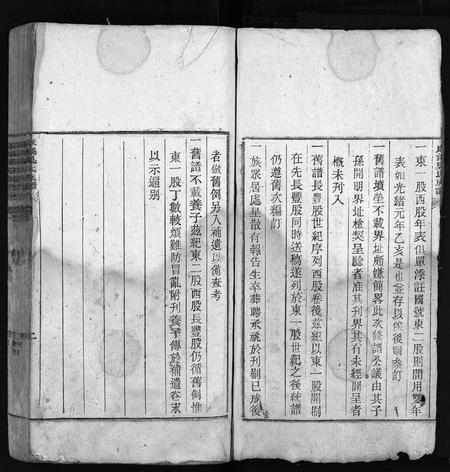 一東一股西股年表俱單漆註國號東二股則間用雙年
表如光緒元年乙亥是也並存以俟後賢參訂
一舊譜墳塋不載界址頗嫌簡畧此次修譜公議由其子
孫開明界址檢契呈驗者准其刊界其有未經開呈者
概未刊入
一舊譜長豐股世紀序列西股卷後茲紀以東一股開剛
在先長豐股同時送稿遂列於東一股世紀之後統譜
仍遵舊次編訂
一族眾居處星散有報告生卒葬聘承祧於刊刷已成後
者倣舊例另入補遺以備查考
一舊譜不載養子茲紀東二股西股長豐股仍循舊例惟
東一股丁數較煩難防冒亂附刊養子傳於補遺卷末
以示區别